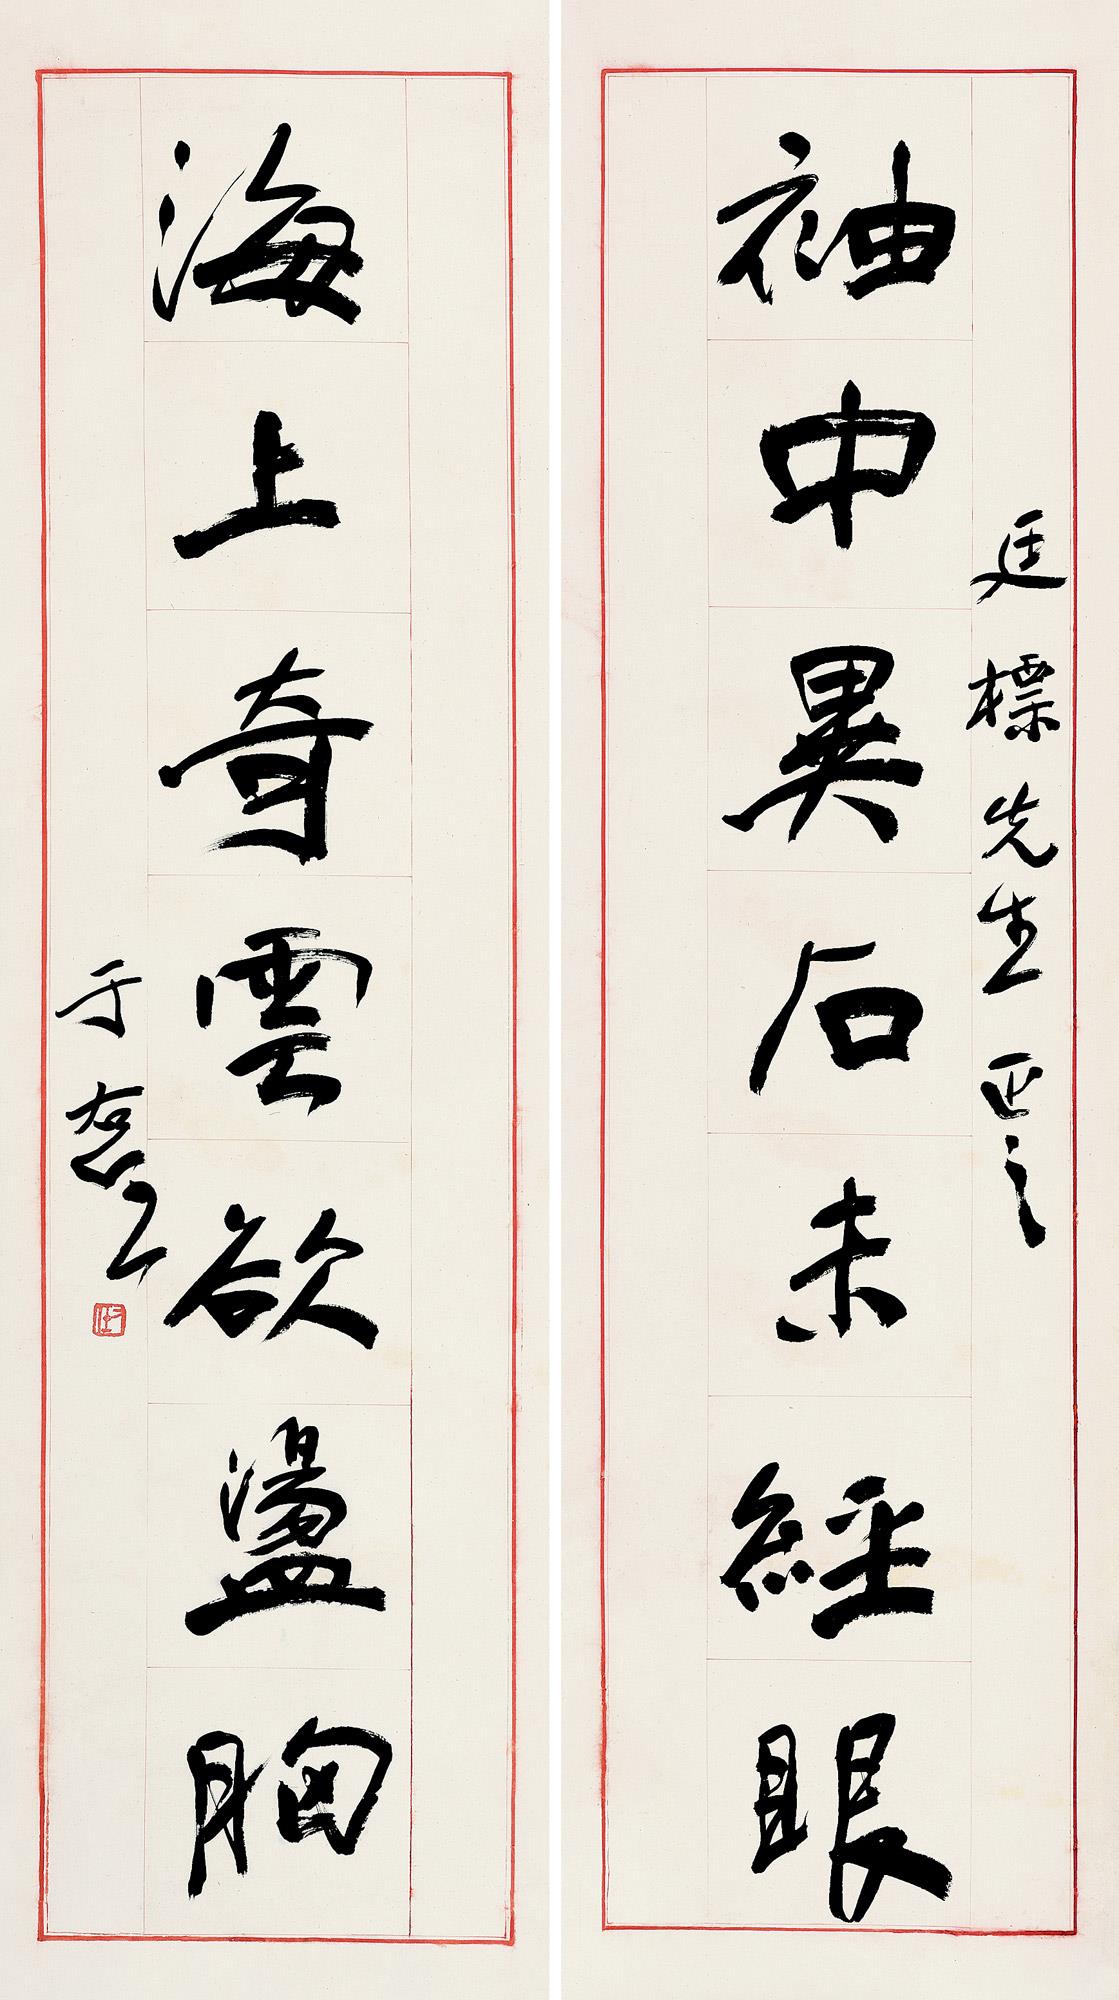 廷標先生正之
袖中異石未經眼
海上奇雲欲盪胸
于右任